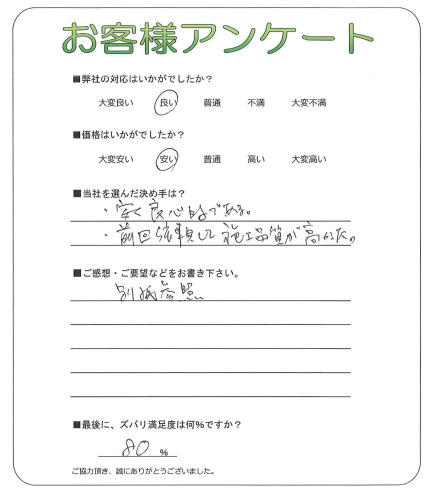 お客様アンケート
■弊社の対応はいかがでしたか？
大変良い 良い 普通 不満 大変不満
■価格はいかがでしたか？
大変安い 安い 普通 高い 大変高い
■当社を選んだ決め手は？
・安く良心的である。
・前回依頼して施工品質が高かった。
■ご感想・ご要望などをお書き下さい。
別紙参照
■最後に、ズバリ満足度は何％ですか？
80 ％
ご協力頂き、誠にありがとうございました。